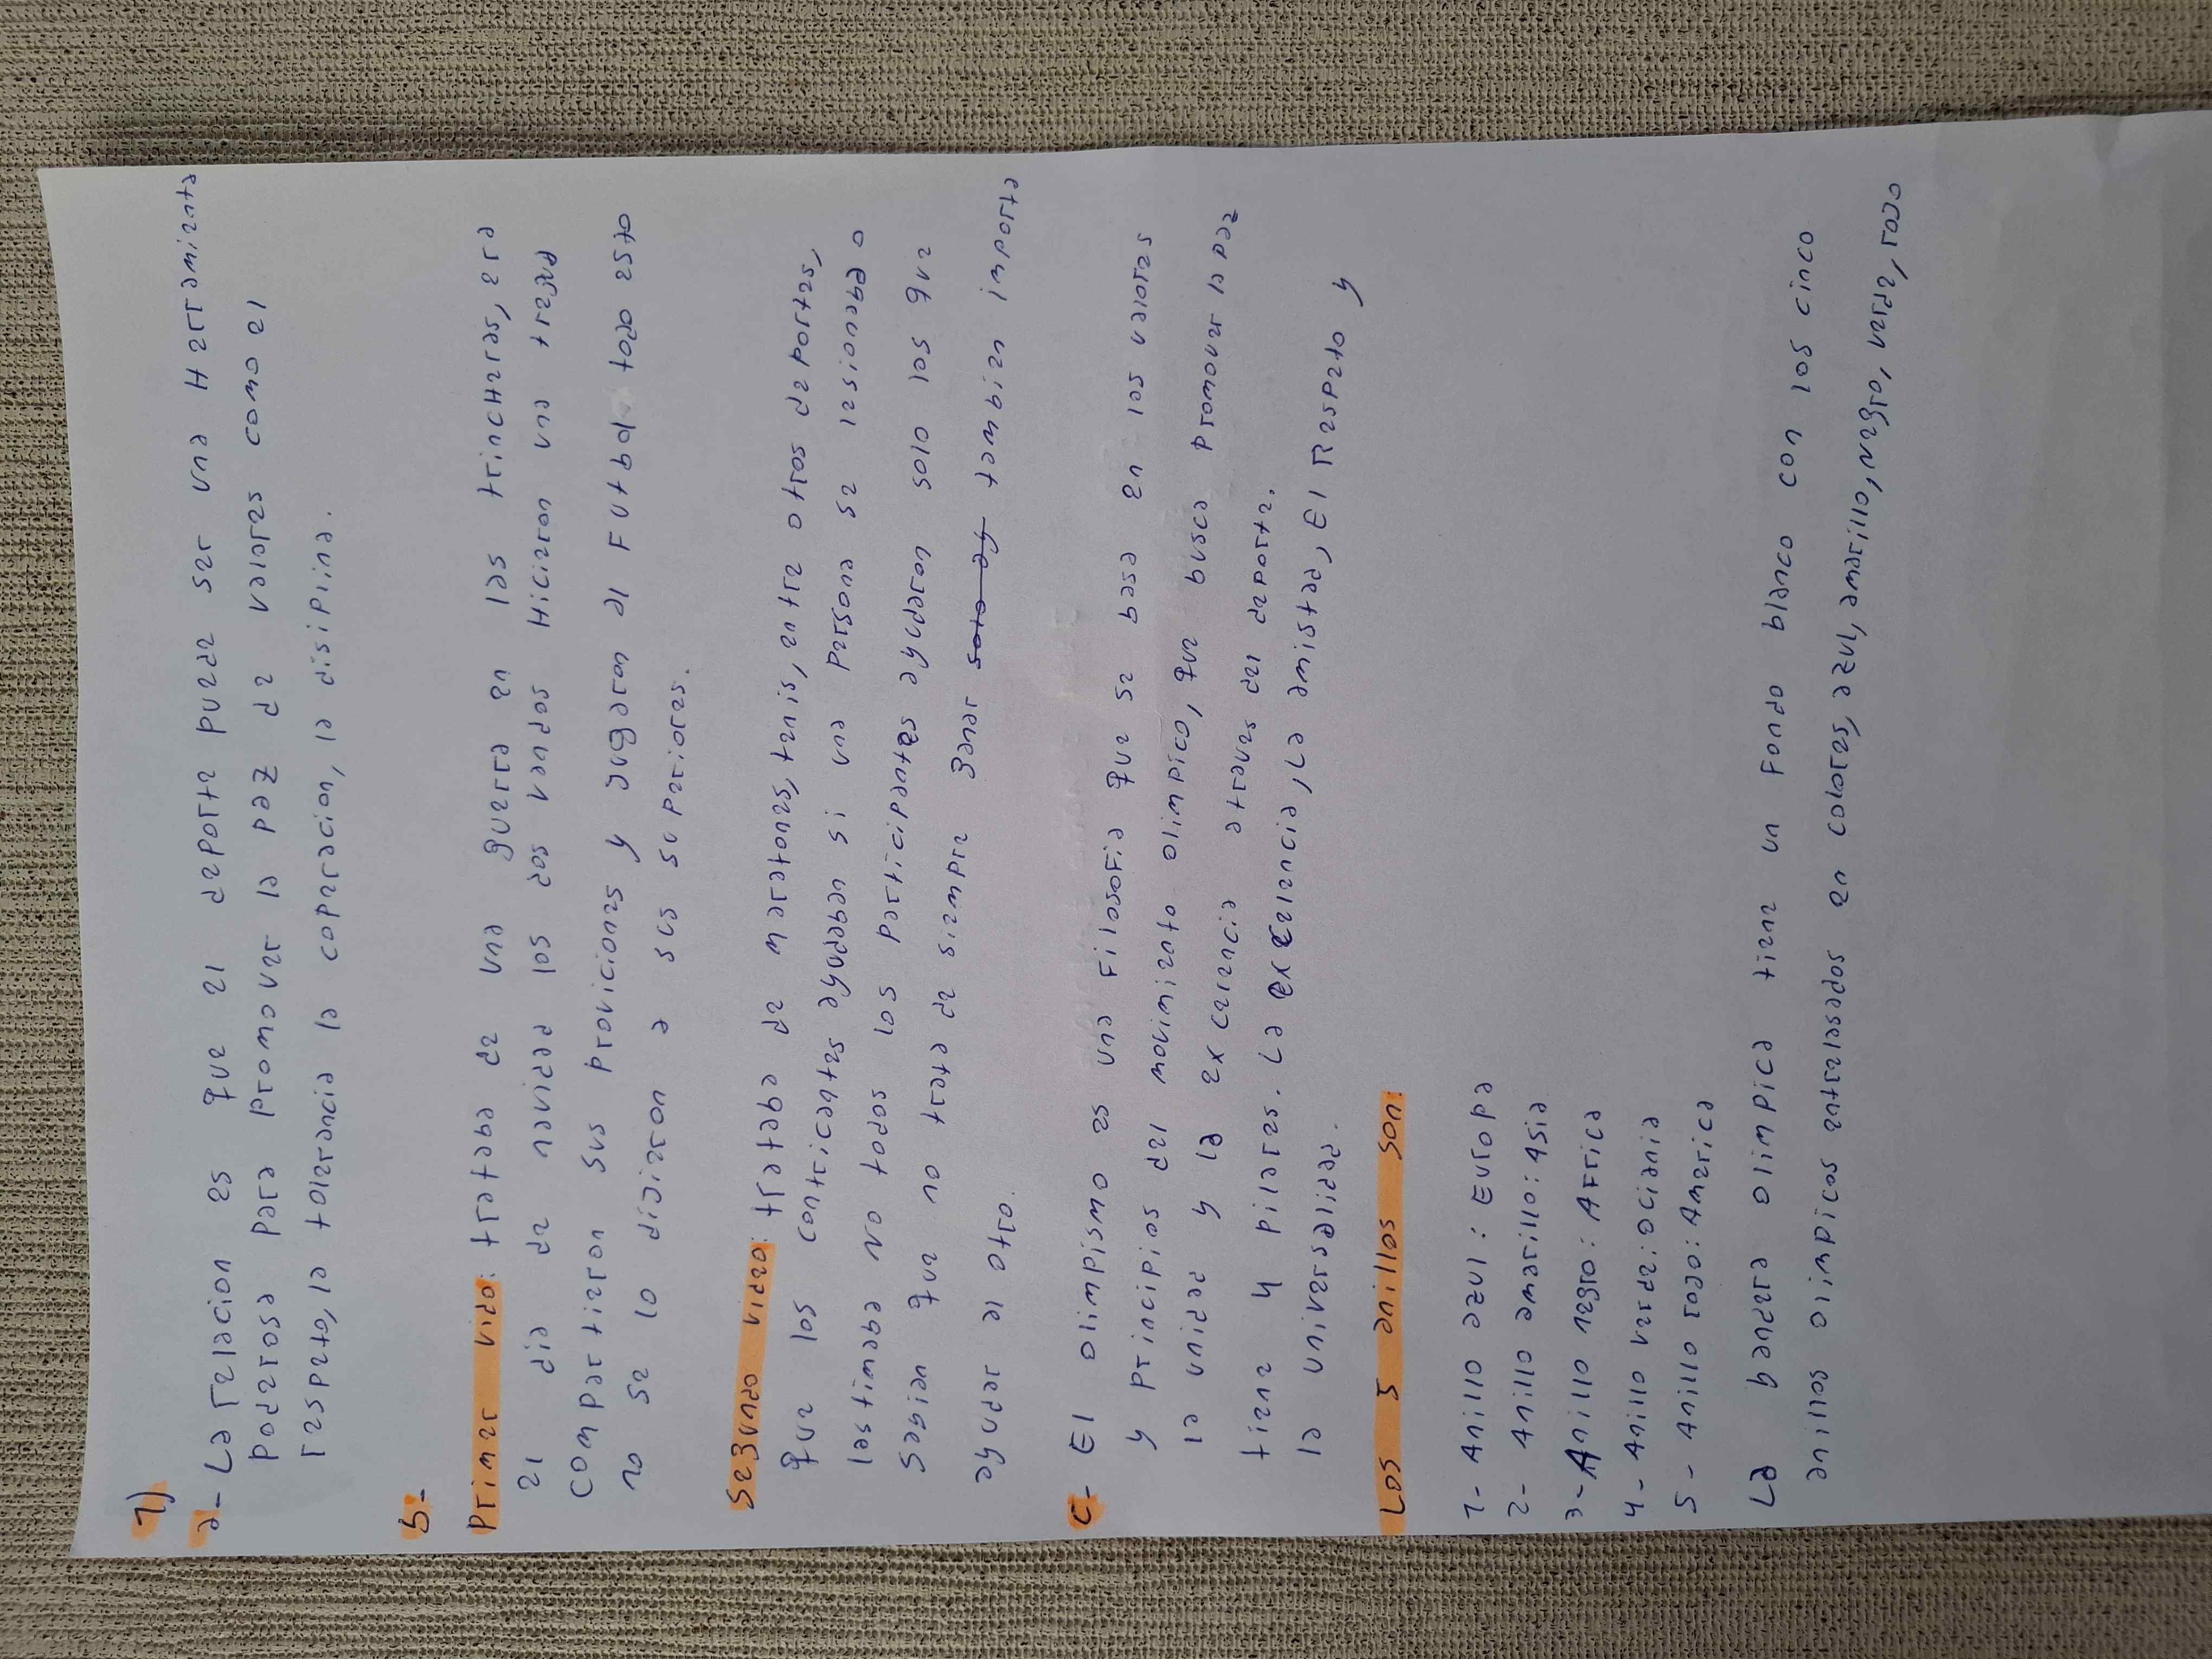 1)
a- La relacion es que el deporte puede ser una Herramienta
poderosa para promover la paz de valores como el
respeto, la tolerancia la coperacion, la disiplina.
b-
Primer vido: trataba de una guerra en las trincheras, era
el dia de navidad los dos vandos Hicieron una tregua
compartieron sus proviciones y jugaron al Futbol todo esto
no se lo dijieron a sus superiores.
Segundo video: trataba de maratones, tenis, entre otros deportes,
que los contricantes ayudaban si una persona se lesionaba o
lastimaba no todos los participantes ayudaron solo los que
sabian que no trata de siempre ganar solo ay tambien importa
ayudar al otro.
c- El olimpismo es una Filosofia que se basa en los valores
y principios del movimiento olimpico, que busca promover la paz
la unidad y la excelencia a traves del deporte.
tiene 4 pilares. La excelencia, La amistad, El Respeto y
la universalidad.
Los 5 anillos son:
1- Anillo azul: Europa
2- Anillo amarillo: Asia
3- Anillo negro: Africa
4- Anillo verde: Ociania
5- Anillo rojo: America
La bandera olimpica tiene un Fondo blanco con los cinco
anillos olimpicos entrelasados en colores, azul, amarillo, negro, verde, rojo